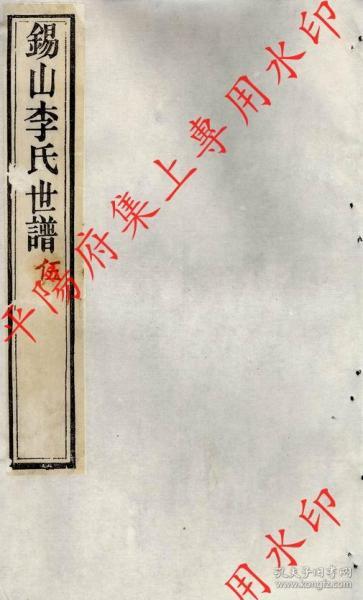 錫山李氏世譜
伍
平陽府集上專用水印
用水印
孔夫子旧书网
www.kongfz.com